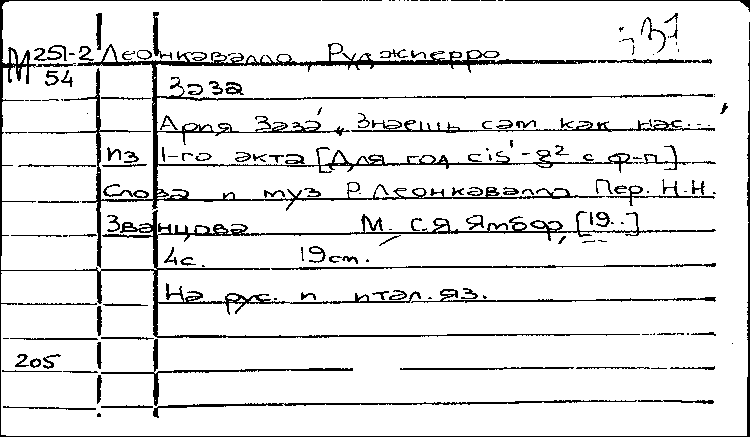 М 251-2 Леонкавалло, Руджиерро
54
Заза
Ария Заза „Знаешь сам как нас..."
из 1-го акта [Для гол cis¹-g² с ф-п.]
Слова и муз Р. Леонкавалло Пер. Н.Н.
Званцова М. С.Я. Ямбор, [19..]
4с. 19 cm.
На рус. и итал. яз.
205